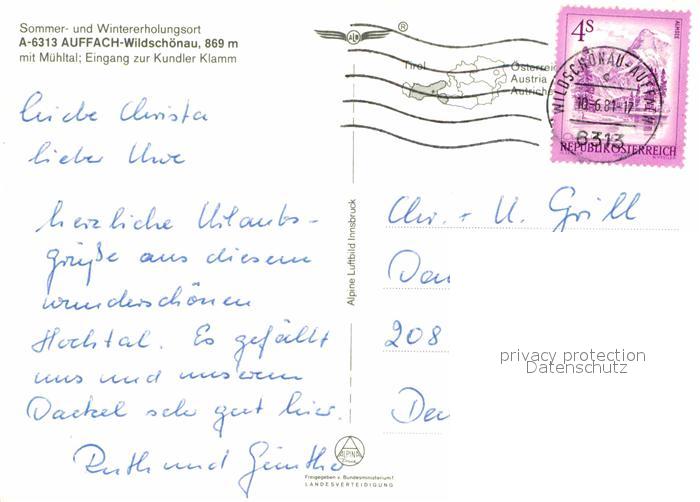 Sommer- und Wintererholungsort
A-6313 AUFFACH-Wildschönau, 869 m
mit Mühltal; Eingang zur Kundler Klamm
Liebe Christa
lieber Uwe
herzliche Urlaubs-
grüße aus diesem
wunderschönen
Hochtal. Es gefällt
uns und unserem
Dackel sehr gut hier.
Ruth und Günther
Alpine Luftbild Innsbruck
ALPINE
Freigegeben v. Bundesministerium f.
LANDESVERTEIDIGUNG
®
Tirol
Österreich
Austria
Autriche
4S
ALMSEE
WILDSCHÖNAU-AUFFACH
10.-6.81-17
6313
REPUBLIK ÖSTERREICH
Chr. + U. Grill
208
privacy protection
Datenschutz